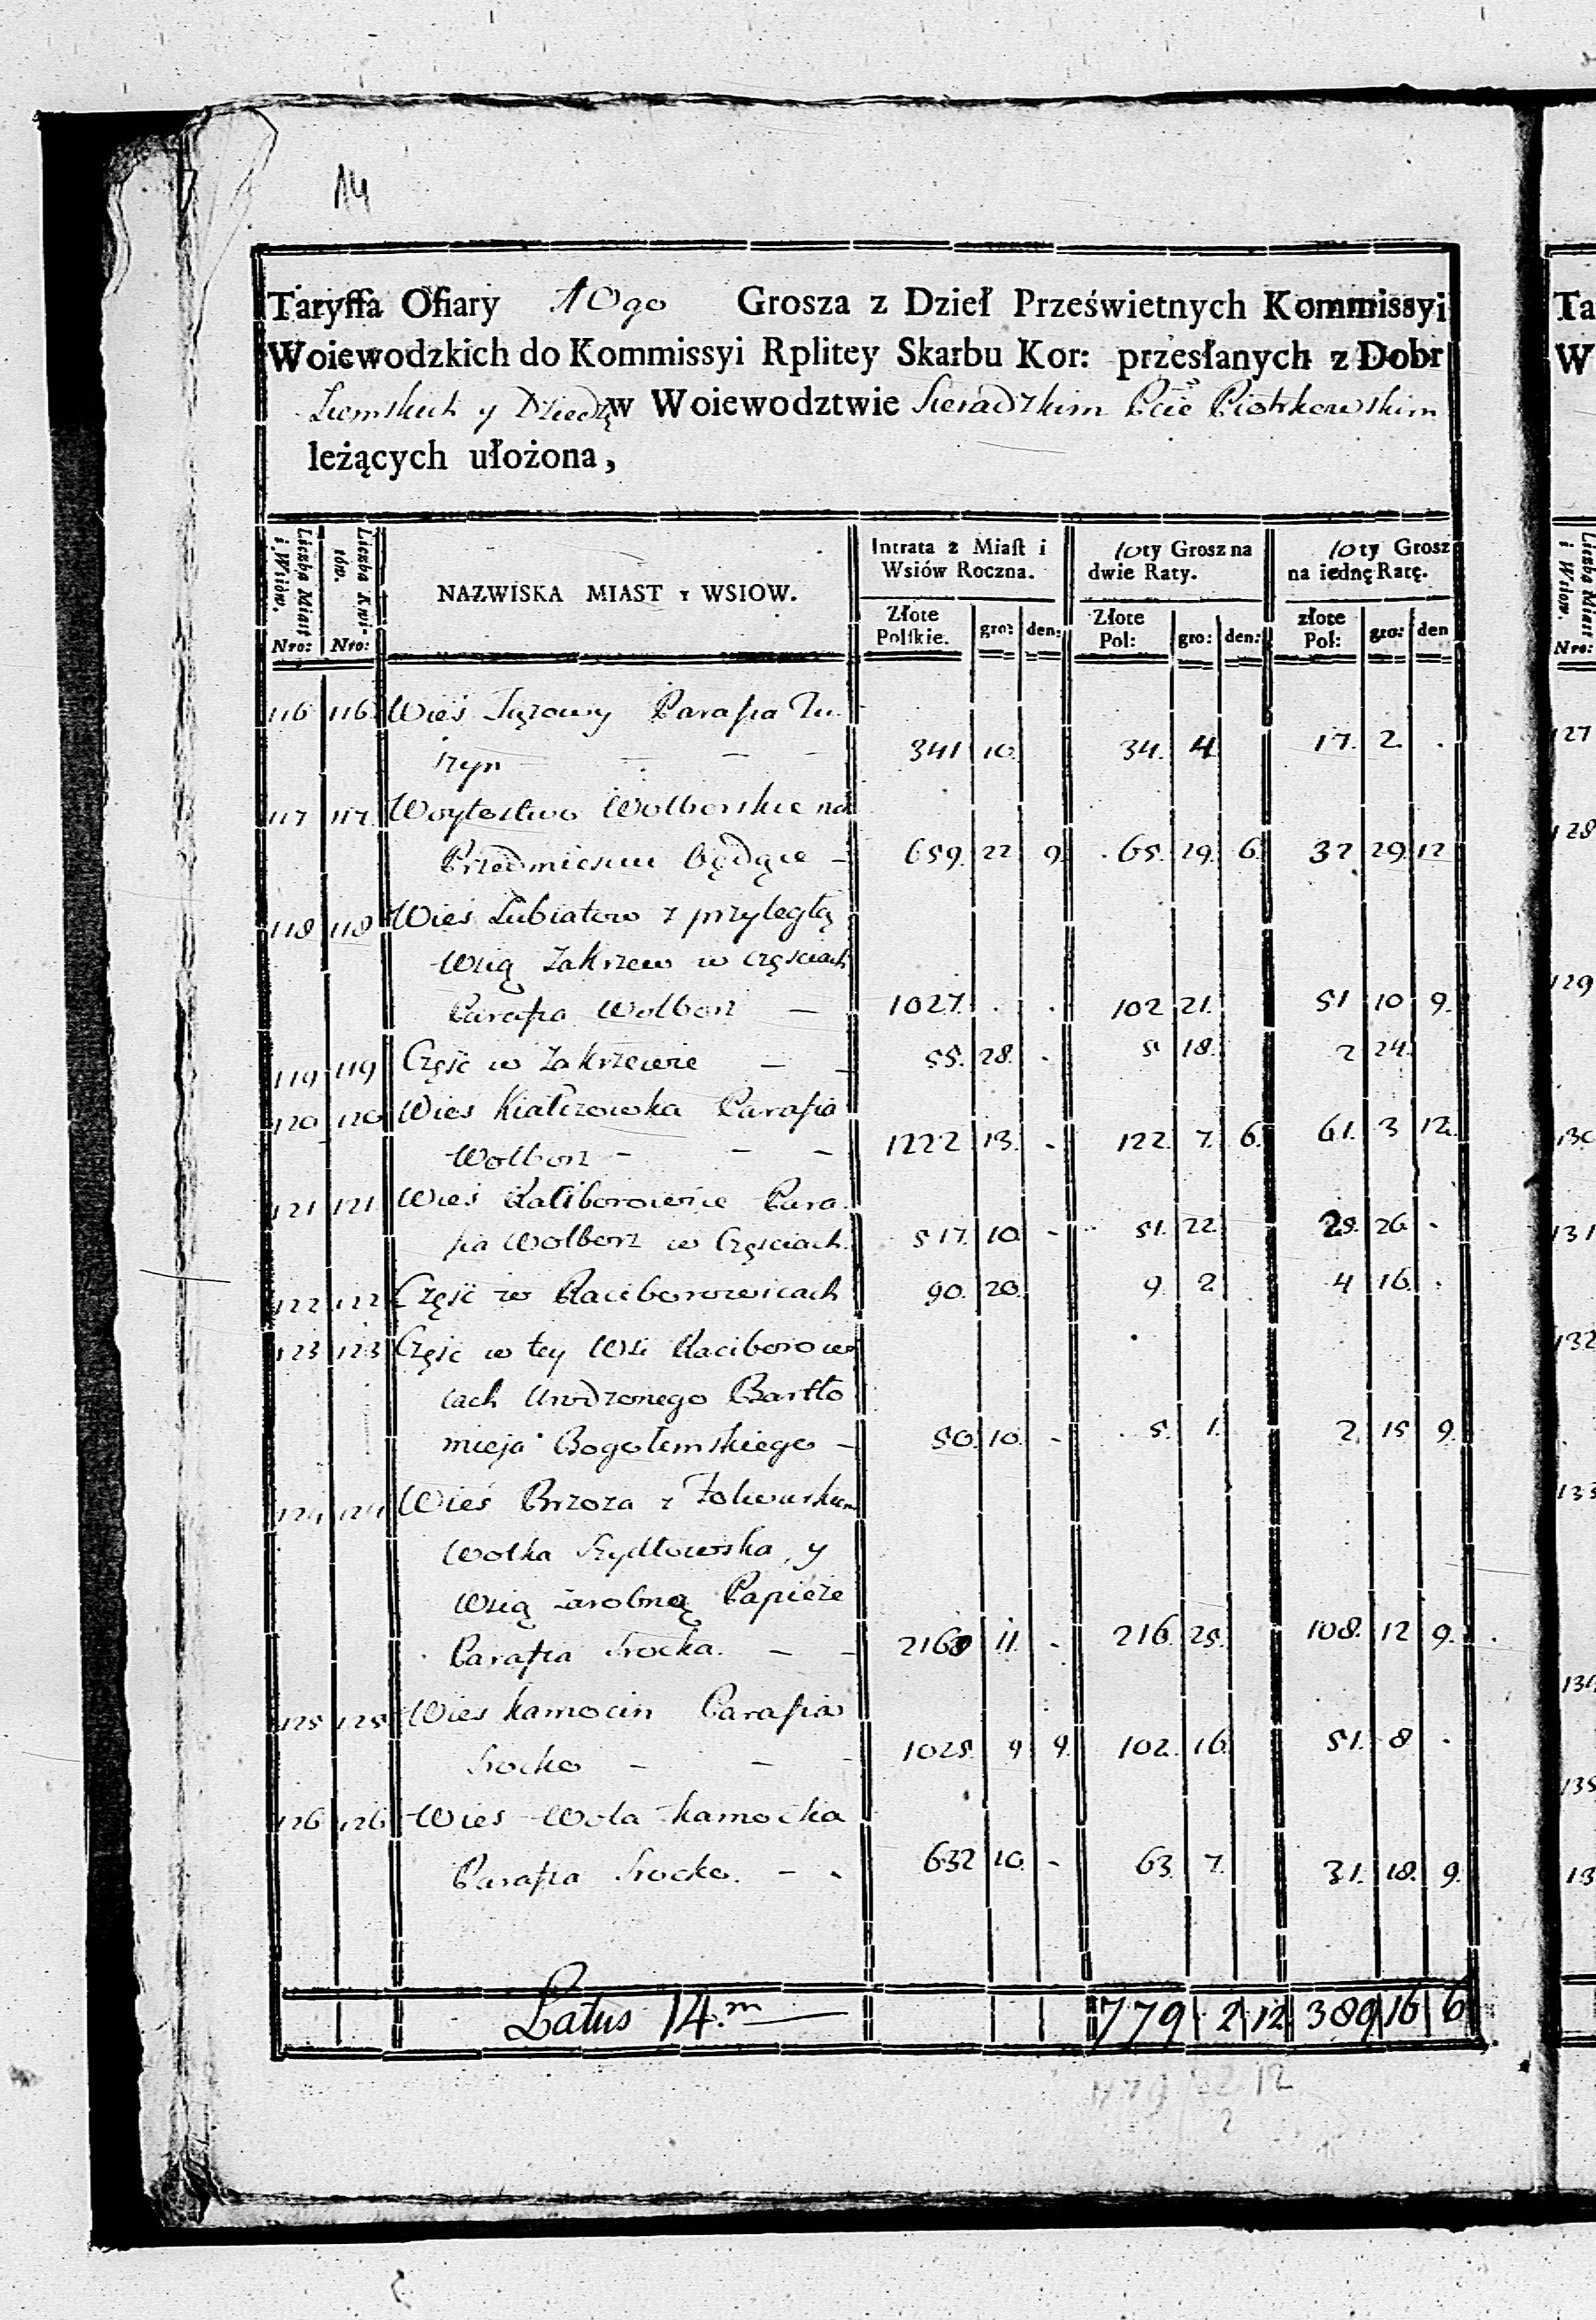 14
Taryffa Ofiary 10go Grosza z Dzieł Prześwietnych Kommissyi
Woiewodzkich do Kommissyi Rplitey Skarbu Kor: przesłanych z Dobr
Ziemskich y Dziedz w Woiewodztwie Sieradzkim Pcie Piotrkowskim
leżących ułożona,
Liczba Miast i Wsiów. Nro: Liczba Kwitów. Nro: NAZWISKA MIAST Y WSIOW. Intrata z Miast i Wsiów Roczna. 10ty Grosz na dwie Raty. 10ty Grosz na iednę Ratę.
Złote Polskie. gro: den: Złote Pol: gro: den: złote Pol: gro: den
116 116 Wieś Parafia Tu
szyn 341 10 34. 4 17. 2. .
117 117 Woytostwo Wolborskie na
Przedmiesciu będące 659. 22 9 65. 29. 6 32 29 12
118 118 Wieś Lubiatow z przyległą
Wsią Zakrzew w częsciach
Parafia Wolborz 1027. . . 102 21. 51 10 9.
119 119 Część w Zakrzewie 55. 28. - 5 18. 2 24.
120 120 Wies Kiałczowka Parafia
Wolborz 1222 13. - 122. 7. 6. 61. 3 12.
121 121 Wieś Raciborowice Para
fia Wolborz w Częsciach. 517. 10 - 51. 22. 25. 26. -
122 122 Część w Raciborowicach 90. 20. 9. 2. 4 16. .
123 123 Część w tey Wsi Raciborowi
cach Urodzonego Bartło
mieja Bogolemskiego 50. 10. - 5. 1. 2. 15 9.
124 124 Wieś Brzoza z Folwarkiem
Wolka Szydłowska, y
Wsią zarobną Papieże
Parafia Srocka. 2168 11. - 216. 25. 108. 12 9.
125 125 Wies Kamocin Parafia
Srocko 1025. 9 9. 102. 16. 51. 8 .
126 126 Wies Wola Kamocka
Parafia Srocko. 632 10. - 63. 7. 31. 18. 9.
Latus 14.m 779. 2 12 389 16 6
127
128
129
130
131
132
133
134
135